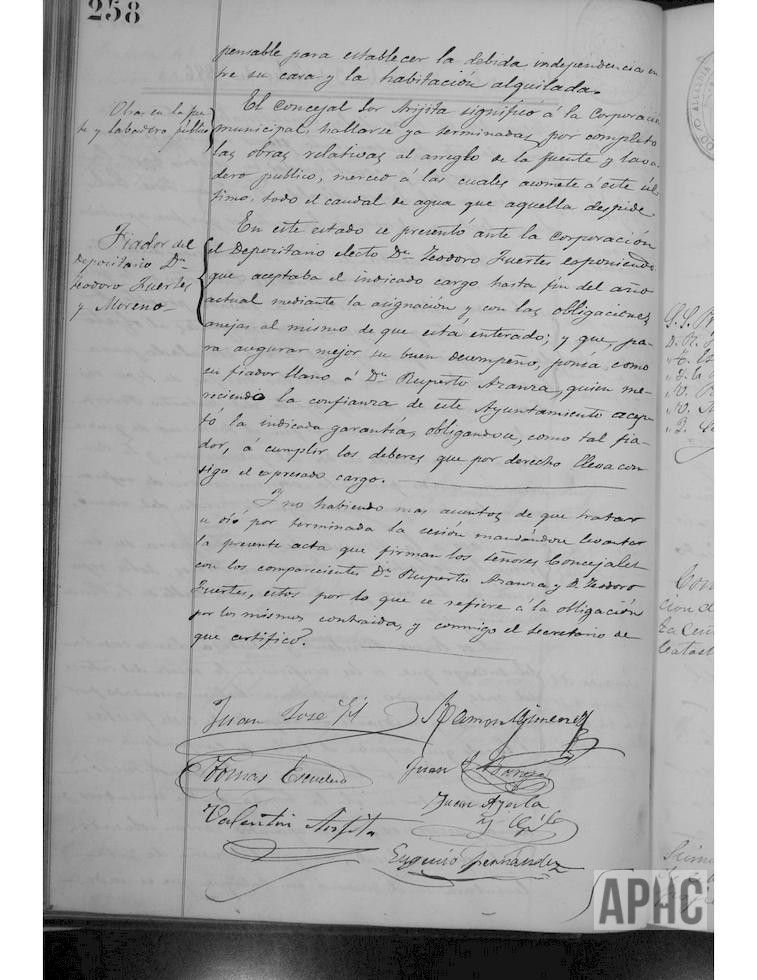 258
pensable para establecer la debida independencia en
tre su casa y la habitación alquilada.
Obras en la fuen
te y labadero público
El Concejal Sor Arijita significó á la Corporación
municipal, hallarse ya terminadas por completo
las obras relativas al arreglo de la fuente y lava
dero publico, merced á las cuales acomete á este úl
timo, todo el caudal de agua que aquella despide
Fiador del
Depositario Dn
Teodoro Fuertes
y Moreno
En este estado se presentó ante la corporación
el Depositario electo Dn Teodoro Fuertes esponiendo
que aceptaba el indicado cargo hasta fin del año
actual mediante la asignación y con las obligaciones
anejas al mismo de que está enterado; y que, pa-
ra asegurar mejor su buen desempeño, ponía como
su fiador llano á Dn Ruperto Aranza, quien me-
reciendo la confianza de este Ayuntamiento acep-
tó la indicada garantía, obligandose, como tal fia-
dor, á cumplir los deberes que por derecho lleva con
sigo el espresado cargo.
Y no habiendo mas asuntos de que tratar
se dió por terminada la sesión mandandose levantar
la presente acta que firman los señores Concejales
con los comparecientes Dn Ruperto Aranza y D. Teodoro
Fuertes, estos por lo que se refiere á la obligación
por los mismos contraida, y conmigo el Secretario de
que certifico.
Juan José Gil
Ramon Gimenez
Tomas Escudero
Juan
Juan Ayerla
y Gil
Valentin Arijita
Eugenio Fernandez
APHC